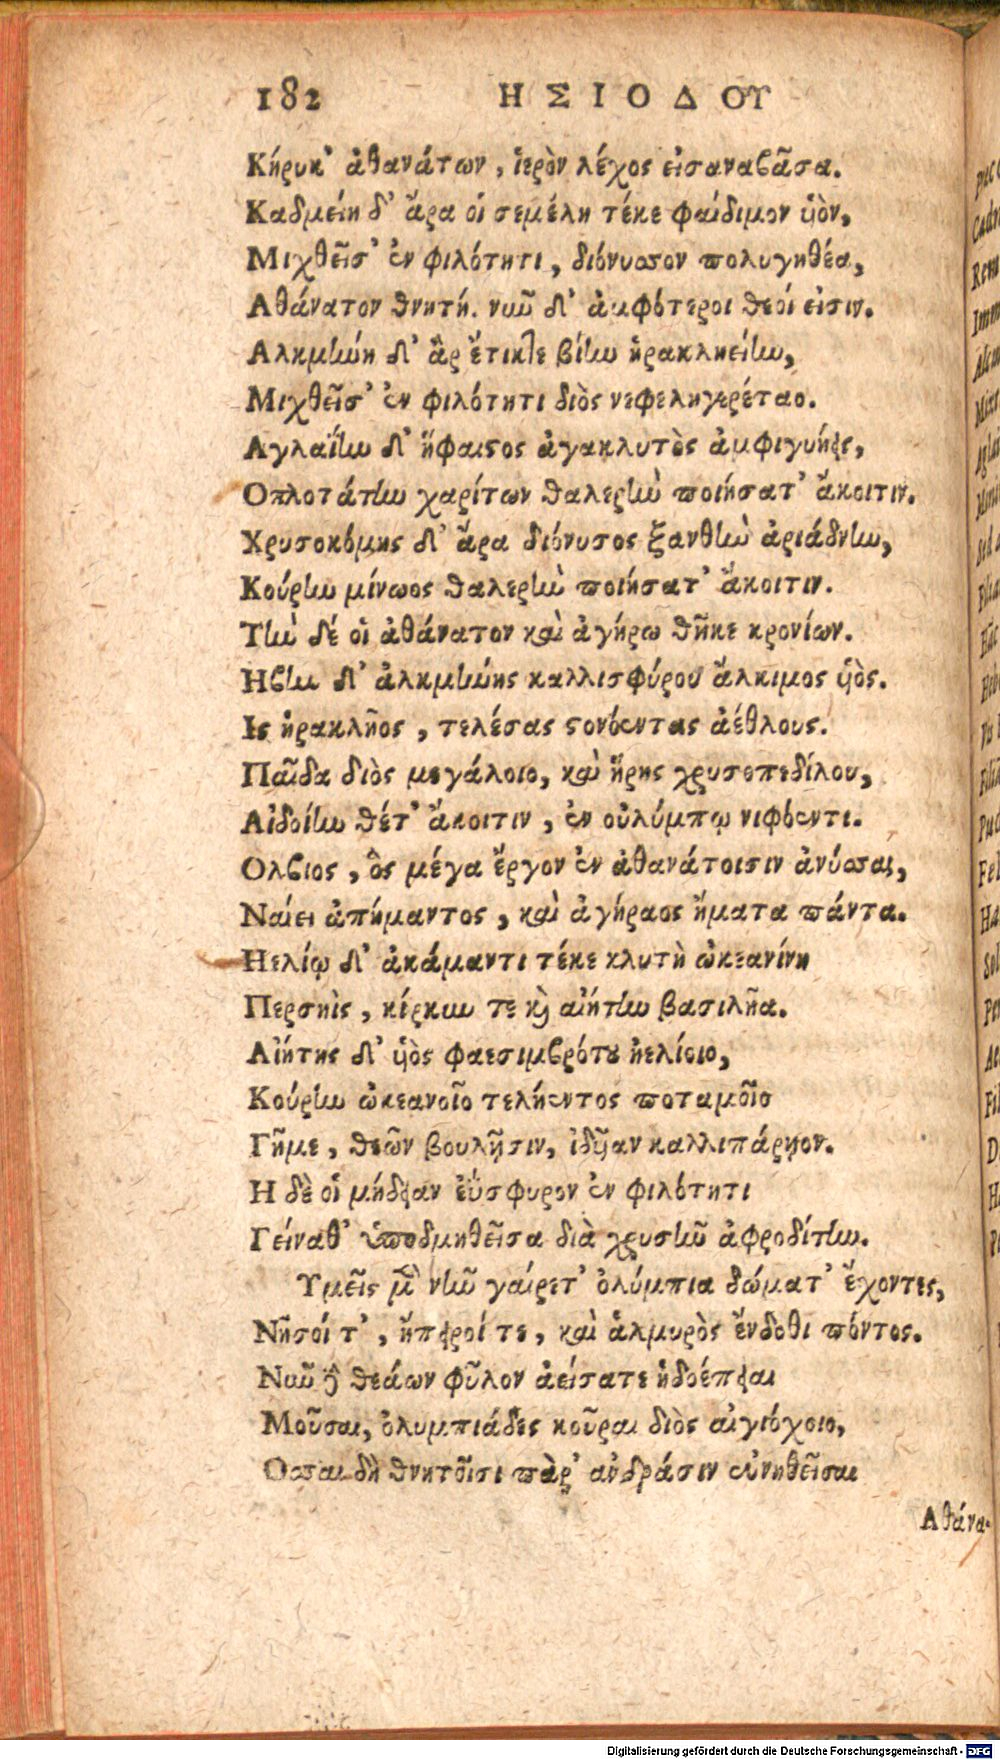 182 ΗΣΙΟΔΟΥ
Κήρυκ' ἀθανάτων, ἱερὸν λέχος εἰσαναβᾶσα.
Καδμείη δ' ἄρα οἱ σεμέλη τέκε φαίδιμον υἱὸν,
Μιχθεῖσ' ἐν φιλότητι, διόνυσσον πολυγηθέα,
Αθάνατον θνητή. νῦν δ' ἀμφότεροι θεοί εἰσιν.
Αλκμήνη δ' ἂρ ἔτικτε βίην ἡρακληείην,
Μιχθεῖσ' ἐν φιλότητι διὸς νεφεληγερέταο.
Αγλαΐην δ' ἥφαιστος ἀγακλυτὸς ἀμφιγυήεις,
Οπλοτάτην χαρίτων θαλερὴν ποιήσατ' ἄκοιτιν.
Χρυσοκόμης δ' ἄρα διόνυσος ξανθὴν ἀριάδνην,
Κούρην μίνωος θαλερὴν ποιήσατ' ἄκοιτιν.
Τὴν δέ οἱ ἀθάνατον καὶ ἀγήρω θῆκε κρονίων.
Ηβην δ' ἀλκμήνης καλλισφύρου ἄλκιμος υἱὸς.
Ις ἡρακλῆος, τελέσας στονόεντας ἀέθλους.
Παῖδα διὸς μεγάλοιο, καὶ ἥρης χρυσοπεδίλου,
Αἰδοίην θέτ' ἄκοιτιν, ἐν οὐλύμπῳ νιφόεντι.
Ολβιος, ὃς μέγα ἔργον ἐν ἀθανάτοισιν ἀνύσσας,
Ναίει ἀπήμαντος, καὶ ἀγήραος ἤματα πάντα.
Ηελίῳ δ' ἀκάμαντι τέκε κλυτὴ ὠκεανίνη
Περσηὶς, κίρκην τε καὶ αἰήτην βασιλῆα.
Αἰήτης δ' υἱὸς φαεσιμβρότου ἠελίοιο,
Κούρην ὠκεανοῖο τελήεντος ποταμοῖο
Γῆμε, θεῶν βουλῇσιν, ἰδῦιαν καλλιπάρῃον.
Η δὲ οἱ μήδειαν ἐΰσφυρον ἐν φιλότητι
Γείναθ' ὑποδμηθεῖσα διὰ χρυσῆν ἀφροδίτην.
Υμεῖς μὲν νῦν χαίρετ' ὀλύμπια δώματ' ἔχοντες,
Νῆσοί τ', ἤπειροί τε, καὶ ἁλμυρὸς ἔνδοθι πόντος.
Νῦν δὲ θεάων φῦλον ἀείσατε ἡδυέπειαι
Μοῦσαι, ὀλυμπιάδες κοῦραι διὸς αἰγιόχοιο,
Οσσαι δὴ θνητοῖσι παρ' ἀνδράσιν εὐνηθεῖσαι
Αθάνα-
Digitalisierung gefördert durch die Deutsche Forschungsgemeinschaft - DFG